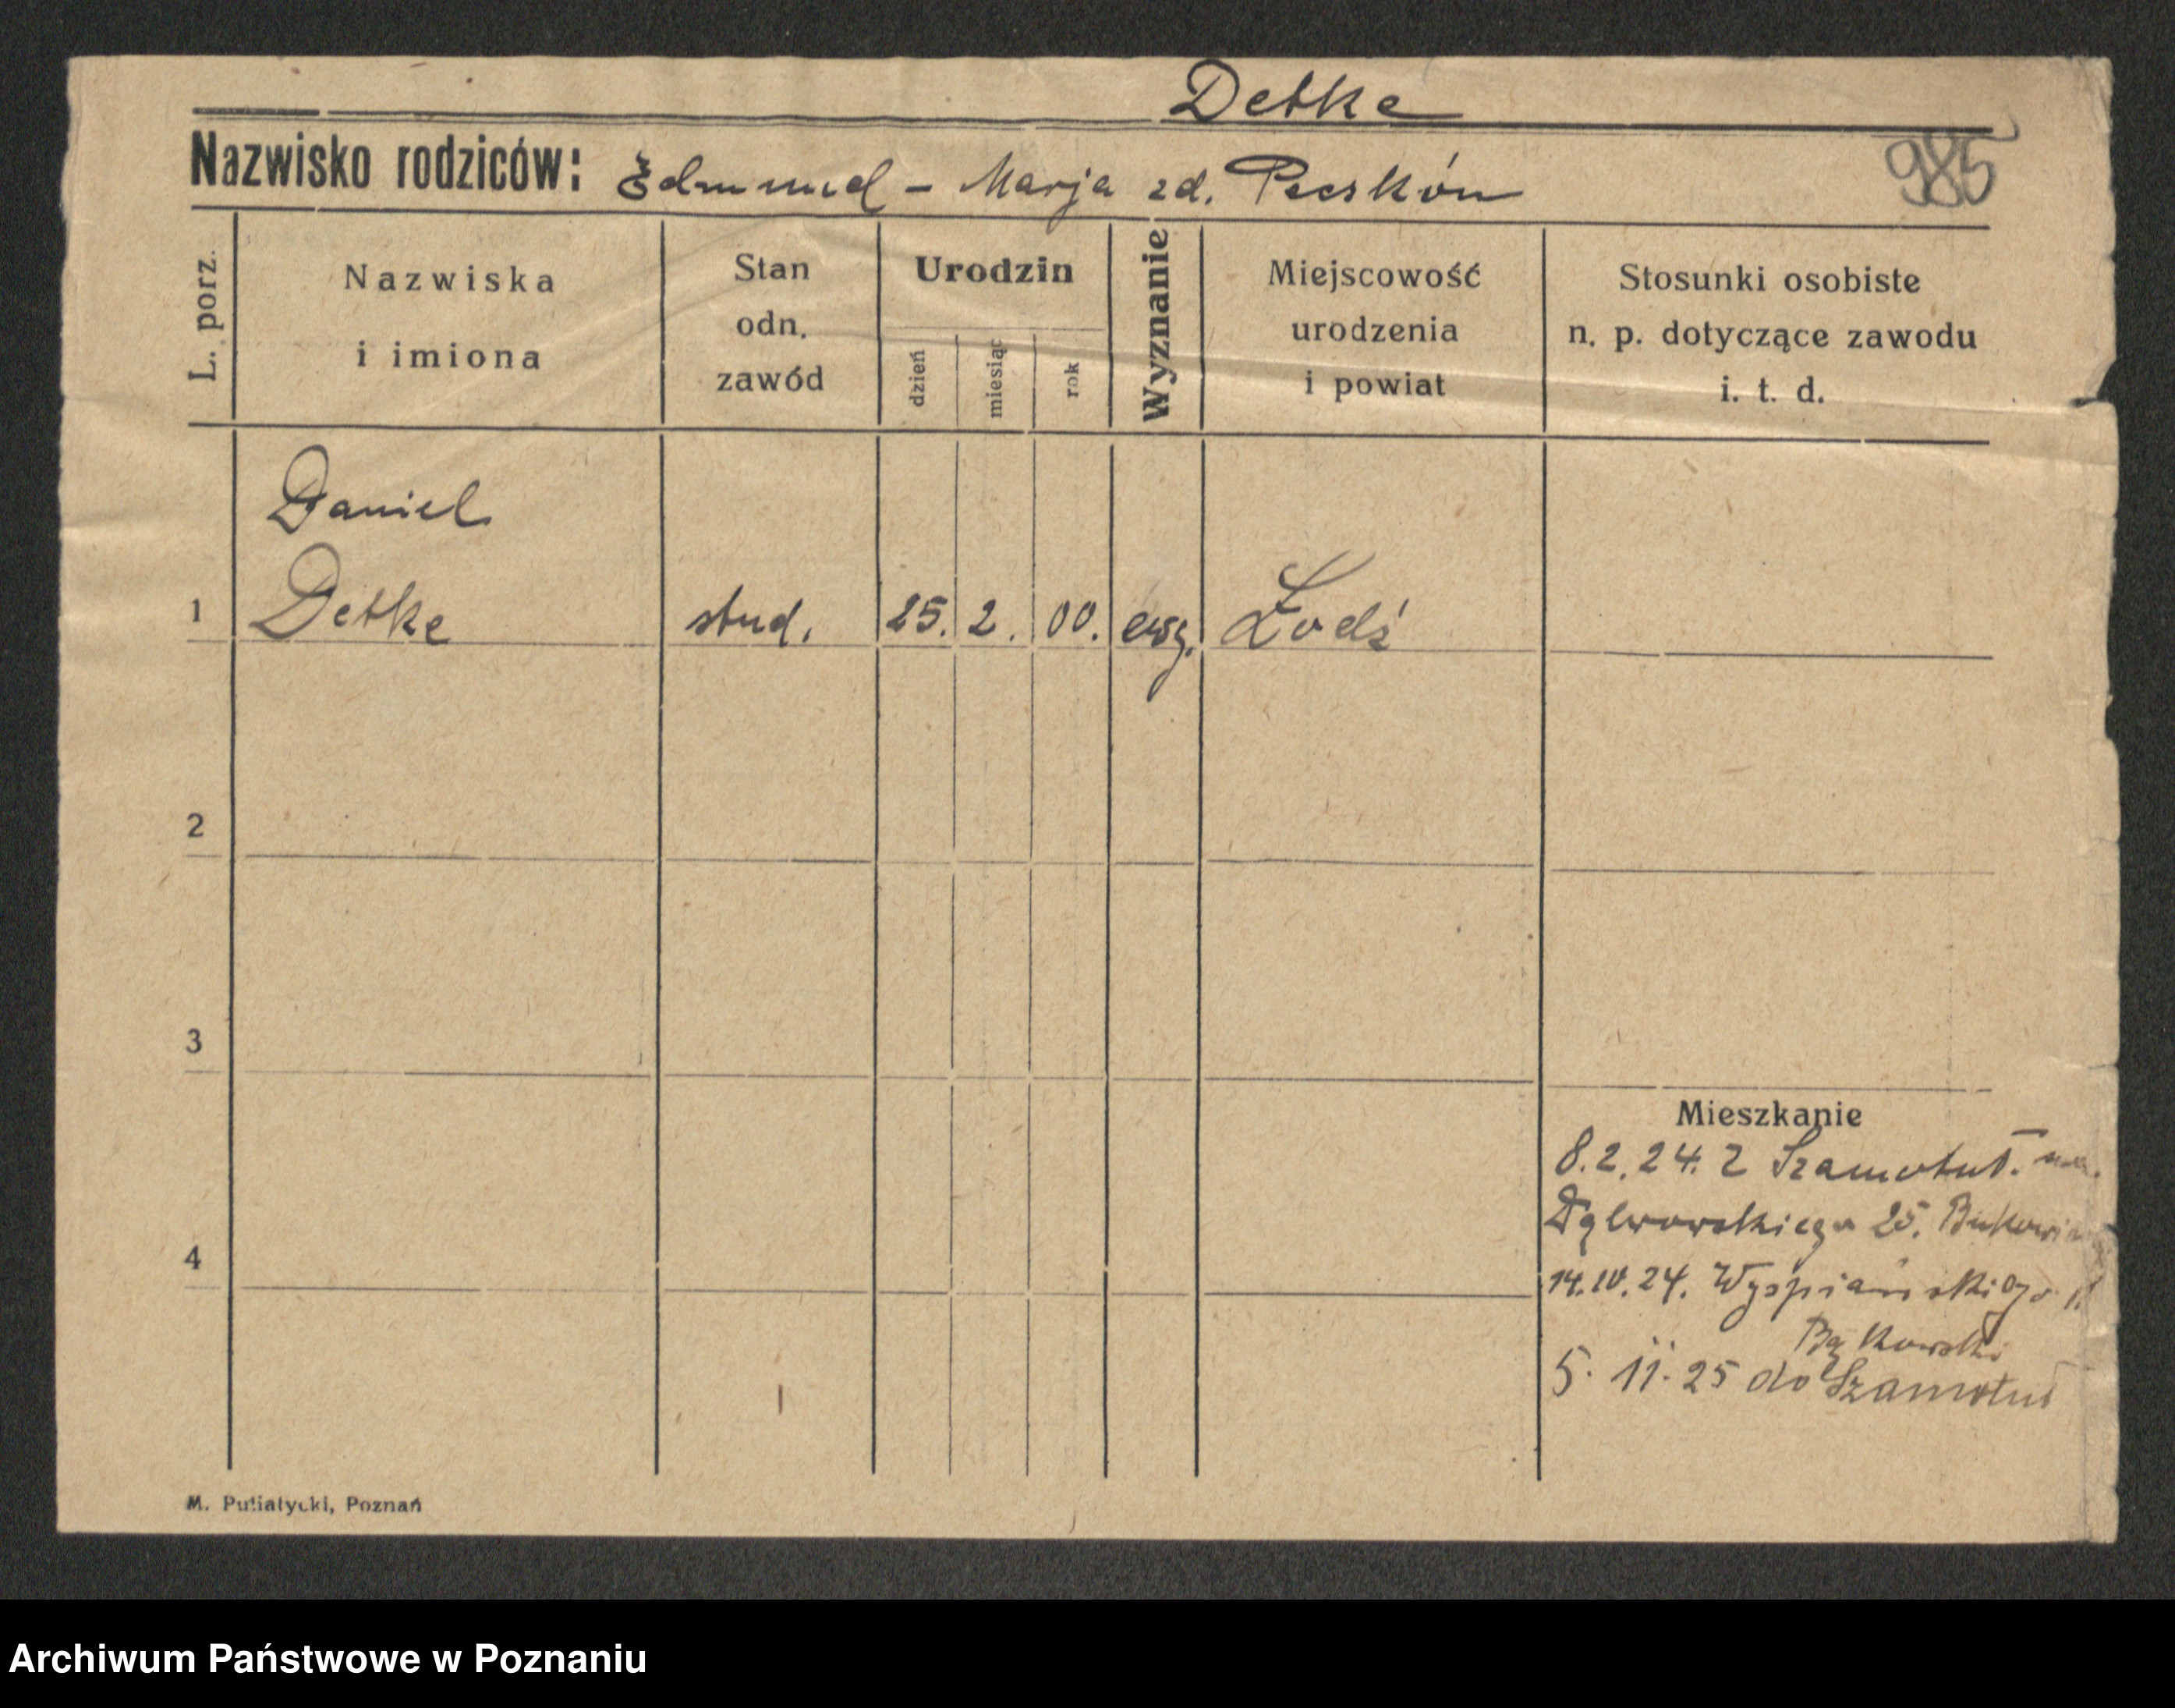 Detke
Nazwisko rodziców: Edmund - Marja zd.
985
L. porz.
Nazwiska
i imiona
Stan
odn.
zawód
Urodzin
dzień
miesiąc
rok
Wyznanie
Miejscowość
urodzenia
i powiat
Stosunki osobiste
n. p. dotyczące zawodu
i. t. d.
Daniel
1 Detke stud. 25. 2. 00. ewg. Łódź
2
3
Mieszkanie
8.2.24. Z Szamotuł.
Dąbrowskiego 25.
4
14.IV.24. Wyspiańskiego
Bąkowski
5. 11. 25 do Szamotuł
M. Putiatycki, Poznań
Archiwum Państwowe w Poznaniu